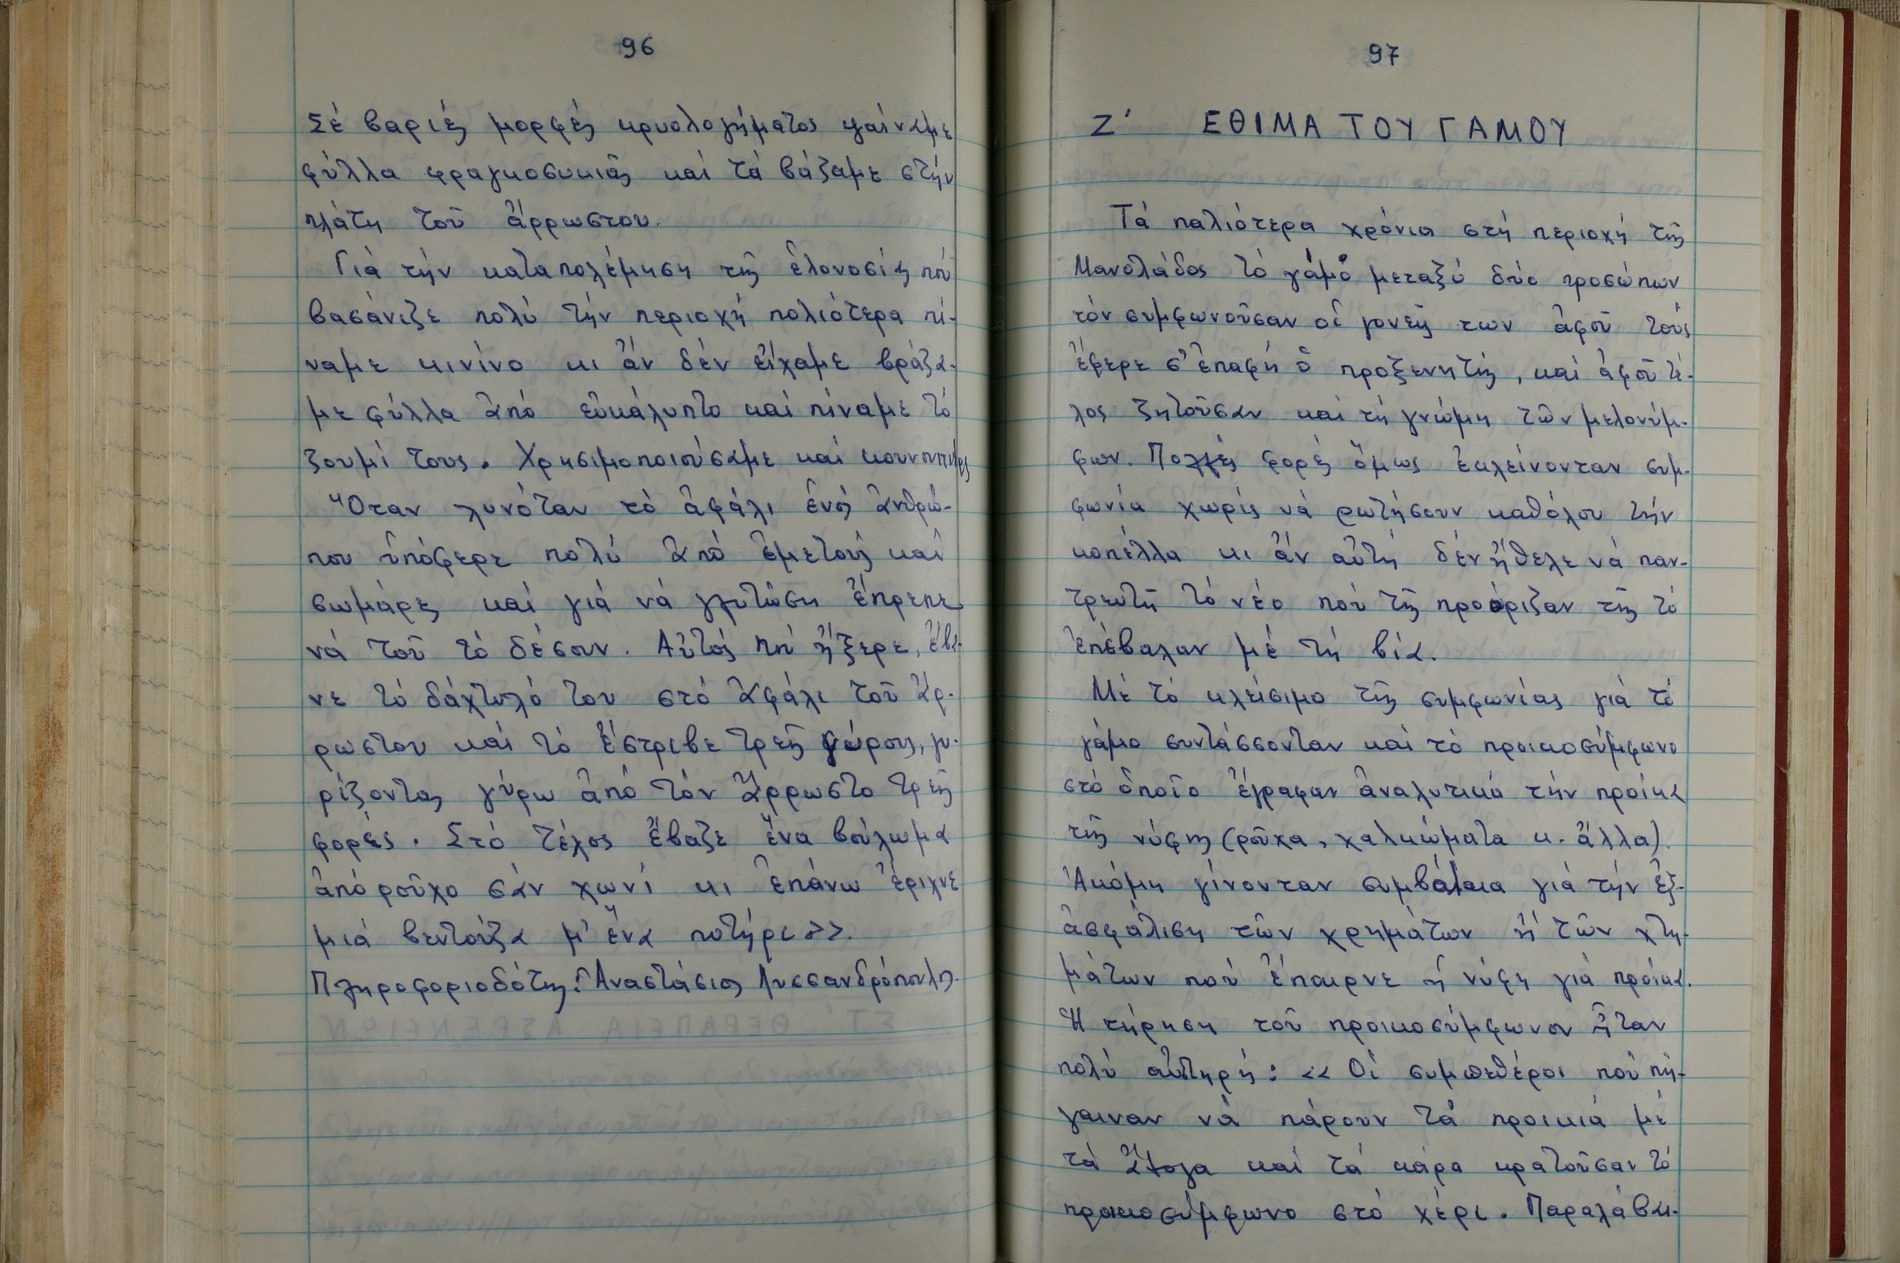 96
Σέ βαριές μορφές κρυολογήματος ψαίναμε
φύλλα φραγκοσυκιᾶς καί τά βάζαμε στήν
πλάτη τοῦ ἄρρωστου.
Γιά τήν καταπολέμηση τῆς ἑλονοσίας πού
βασάνιζε πολύ τήν περιοχή παλιότερα πί-
ναμε κινίνο κι ἄν δέν εἴχαμε βράζα-
με φύλλα ἀπό εὐκάλυπτο καί πίναμε τό
ζουμί τους. Χρησιμοποιούσαμε καί κουνουπιέρες
Ὅταν λυνόταν τό ἀφάλι ἑνός ἀνθρώ-
που ὑπόφερε πολύ ἀπό ἐμετούς καί
σωμάρες καί γιά νά γλυτώση ἔπρεπε
νά τοῦ τό δέσουν. Αὐτός πού ἤξερε, ἔβα-
νε τό δάχτυλό του στό ἀφάλι τοῦ ἀρ-
ρώστου καί τό ἔστριβε τρεῖς γύρους, γυ-
ρίζοντας γύρω ἀπό τόν ἄρρωστο τρεῖς
φορές. Στό τέλος ἔβαζε ἕνα βούλωμα
ἀπό ροῦχο σάν χωνί κι ἐπάνω ἔριχνε
μιά βεντούζα μ' ἕνα ποτήρι>>.
Πληροφοριοδότης: Ἀναστάσιος Λυσσανδρόπουλος.
97
Ζ' ΕΘΙΜΑ ΤΟΥ ΓΑΜΟΥ
Τά παλιότερα χρόνια στή περιοχή τῆς
Μανολάδος τό γάμο μεταξύ δύο προσώπων
τόν συμφωνοῦσαν οἱ γονεῖς των ἀφοῦ τούς
ἔφερε σ' ἐπαφή ὁ προξενητής, καί ἀφοῦ τέ-
λος ζητοῦσαν καί τή γνώμη τῶν μελονύμ-
φων. Πολλές φορές ὅμως ἐκλείνονταν συμ-
φωνία χωρίς νά ρωτήσουν καθόλου τήν
κοπέλλα κι ἄν αὐτή δέν ἤθελε νά παν-
τρευτῆ τό νέο πού τῆς προόριζαν τῆς τό
ἐπέβαλαν μέ τή βία.
Μέ τό κλείσιμο τῆς συμφωνίας γιά τό
γάμο συντάσσονταν καί τό προικοσύμφωνο
στό ὁποῖο ἔγραφαν ἀναλυτικά τήν προίκα
τῆς νύφης (ροῦχα, χαλκώματα κ. ἄλλα).
Ἀκόμη γίνονταν συμβόλαια γιά τήν ἐξ-
ἀσφάλιση τῶν χρημάτων ἤ τῶν χτη-
μάτων πού ἔπαιρνε ἡ νύφη γιά προίκα.
Ἡ τήρηση τοῦ προικοσύμφωνου ἦταν
πολύ αὐστηρή: << Οἱ συμπεθέροι πού πή-
γαιναν νά πάρουν τά προικιά μέ
τά ἄλογα καί τά κάρα κρατοῦσαν τό
προικοσύμφωνο στό χέρι. Παραλάβαι-